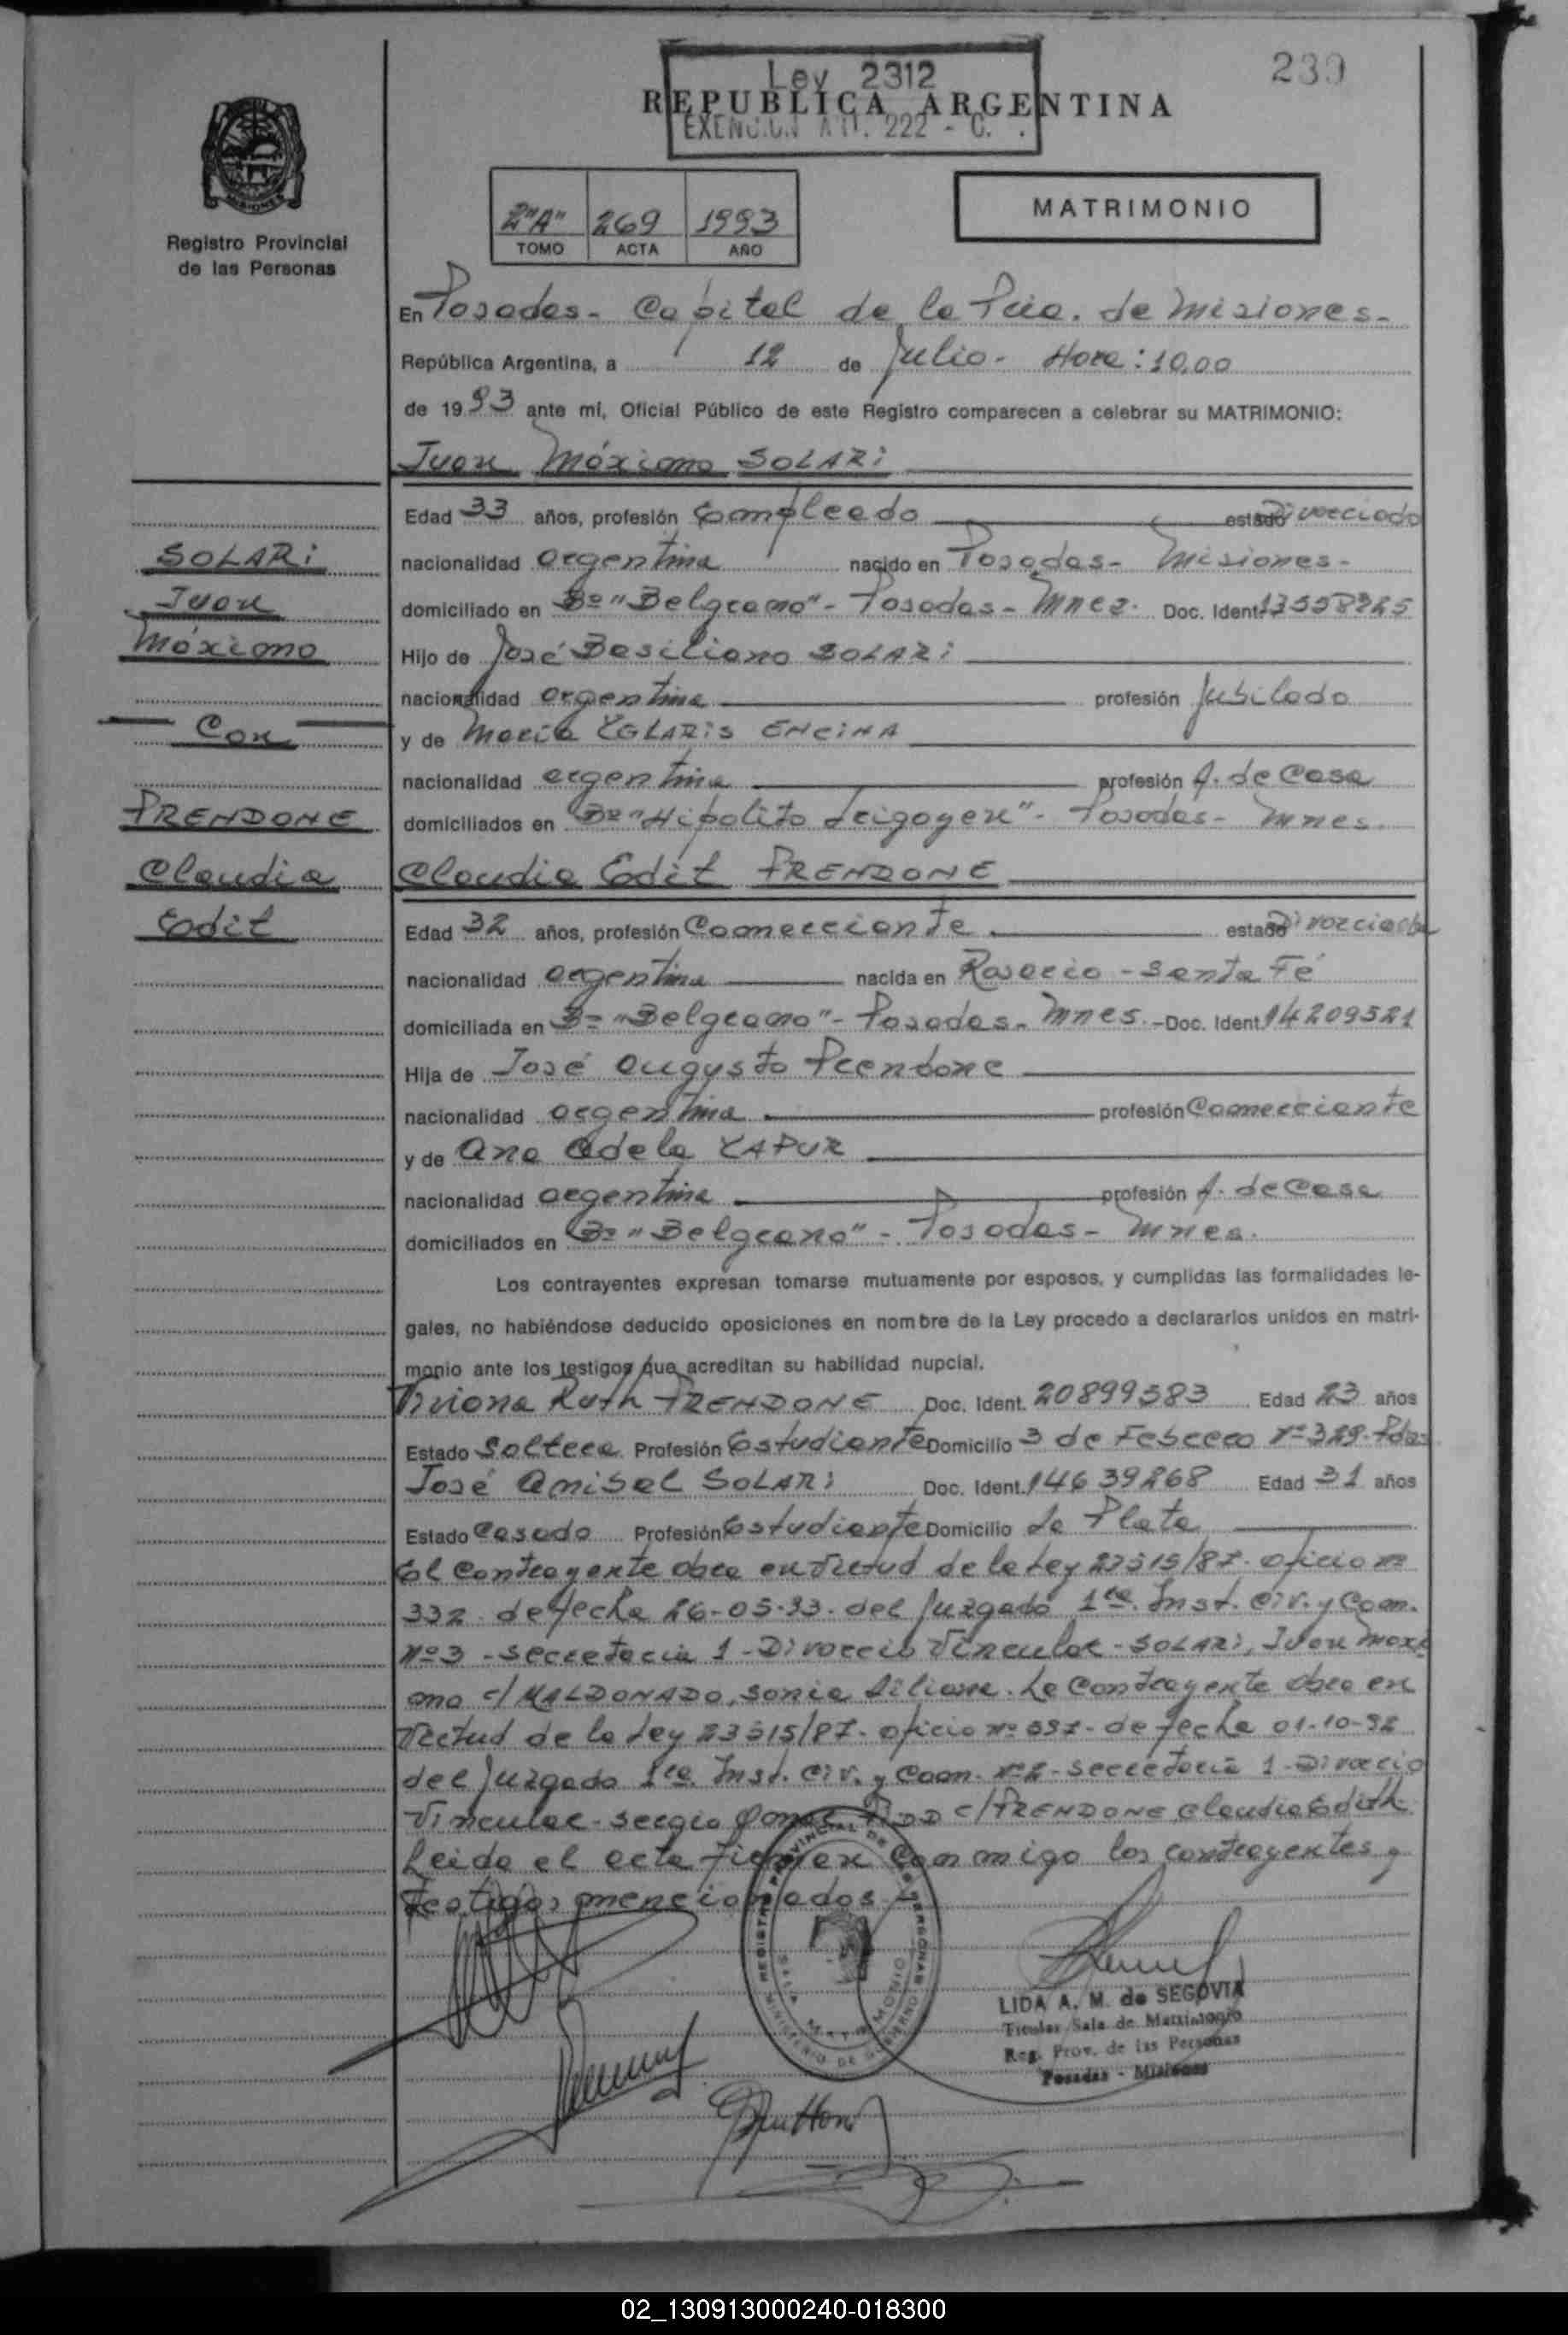 239
Ley 2312
REPUBLICA ARGENTINA
EXENCION Art. 222 - C.
MISIONES
Registro Provincial
de las Personas
2"A" 269 1993
TOMO ACTA AÑO
MATRIMONIO
En Posadas - Capital de la Pcia. de Misiones-
República Argentina, a 12 de Julio - Hora: 10,00
de 1993 ante mí, Oficial Público de este Registro comparecen a celebrar su MATRIMONIO:
Juan Máximo SOLARI
Edad 33 años, profesión Empleado estado Divorciado
nacionalidad argentina nacido en Posadas - Misiones-
domiciliado en Bº "Belgrano" - Posadas - Mnes. Doc. Ident.
Hijo de José Basiliano SOLARI
nacionalidad argentina profesión Jubilado
y de María YGLARIS ENCINA
nacionalidad argentina profesión A. de Casa
domiciliados en Bº "Hipolito Irigoyen" - Posadas - Mnes.
Claudia Edit PRENDONE
Edad 32 años, profesión Comerciante estado Divorciada
nacionalidad argentina nacida en Rosario - Santa Fé
domiciliada en Bº "Belgrano" - Posadas - Mnes. - Doc. Ident. 14209521
Hija de José Augusto Prendone
nacionalidad argentina profesión Comerciante
y de Ana Adela YAPUR
nacionalidad argentina profesión A. de Casa
domiciliados en Bº "Belgrano" - Posadas - Mnes.
Los contrayentes expresan tomarse mutuamente por esposos, y cumplidas las formalidades le-
gales, no habiéndose deducido oposiciones en nombre de la Ley procedo a declararlos unidos en matri-
monio ante los testigos que acreditan su habilidad nupcial.
Viviana Ruth PRENDONE Doc. Ident. 20899583 Edad 23 años
Estado Soltera Profesión Estudiante Domicilio 3 de Febrero Nº 329 - Pdas
José Anibal SOLARI Doc. Ident. 14639268 Edad 31 años
Estado Casado Profesión Estudiante Domicilio La Plata
El Contrayente obra en Virtud de la Ley 23515/87 - oficio nº
332 - de fecha 26-05-93 - del Juzgado 1ra. Inst. Civ. y Com.
Nº 3 - Secretaria 1 - Divorcio Vincular - SOLARI, Juan Maxi
mo c/ MALDONADO, Sonia Liliana. La Contrayente obra en
Virtud de la Ley 23515/87 - oficio nº - de fecha 01-10-92
del Juzgado 1ra. Inst. Civ. y Com. Nº 2 - Secretaria 1 - Divorcio
Vincular - Sergio c/ PRENDONE, Claudia Edith.
Leida el acta firman conmigo los contrayentes y
testigos mencionados -
SOLARI
Juan
Máximo
Con
PRENDONE
Claudia
Edit
REGISTRO PROVINCIAL DE LAS PERSONAS
MINISTERIO DE GOBIERNO
SALA MATRIMONIO
LIDA A. M. de SEGOVIA
Titular Sala de Matrimonio
Reg. Prov. de las Personas
Posadas - Misiones
02_130913000240-018300